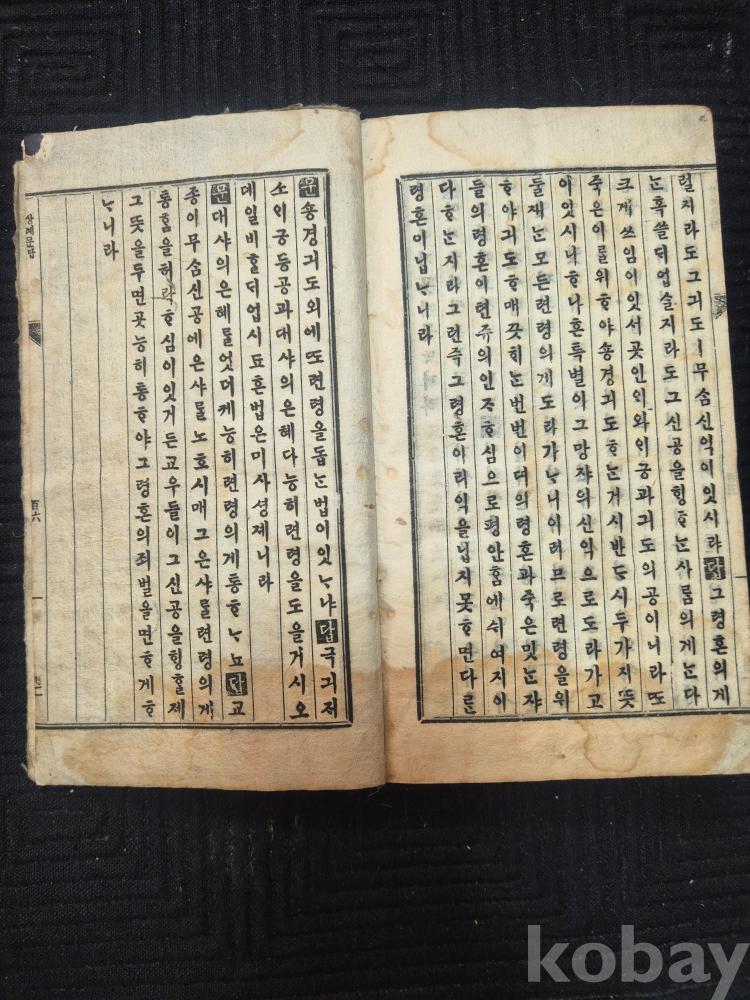 렬지라도그긔도ㅣ무ᄉᆞᆷ신익이잇시랴답그령혼의게
ᄂᆞᆫ혹쓸ᄃᆡ업슬지라도그신공을ᄒᆡᆼᄒᆞᄂᆞᆫ사ᄅᆞᆷ의게ᄂᆞᆫ다
크게쓰임이잇서곳인ᄋᆡ와ᄋᆡ긍과긔도의공이니라ᄯᅩ
죽은이ᄅᆞᆯ위ᄒᆞ야숑경긔도ᄒᆞᄂᆞᆫ거시반ᄃᆞ시두가지ᄯᅳᆺ
이잇시니ᄒᆞ나흔특별이그망쟈의신익으로도라가고
둘재ᄂᆞᆫ모든련령의게도라가ᄂᆞ니이러므로련령을위
ᄒᆞ야긔도ᄒᆞ매ᄭᅳᆺ히ᄂᆞᆫ번번이뎌의령혼과죽은밋ᄂᆞᆫ쟈
들의령혼이텬쥬의인ᄌᆞᄒᆞ심으로평안ᄒᆞᆷ에쉬여지이
다ᄒᆞᄂᆞᆫ지라그런즉그령혼이리익을닙지못ᄒᆞ면다ᄅᆞᆫ
령혼이닙ᄂᆞ니라
문숑경긔도외에ᄯᅩ련령을돕ᄂᆞᆫ법이잇ᄂᆞ냐답극긔저
소ᄋᆡ긍등공과대샤의은혜다능히련령을도을거시오
데일비ᄒᆞᆯᄃᆡ업시됴흔법은미사셩졔니라
문대샤의은혜ᄅᆞᆯ엇더케능히련령의게통ᄒᆞᄂᆞ뇨답교
종이무ᄉᆞᆷ신공에은샤ᄅᆞᆯ노흐시매그은샤ᄅᆞᆯ련령의게
통ᄒᆞᆷ을허락ᄒᆞ심이잇거든교우들이그신공을ᄒᆡᆼᄒᆞᆯ제
그ᄯᅳᆺ을두면곳능히통ᄒᆞ야그령혼의죄벌을면ᄒᆞ게ᄒᆞ
ᄂᆞ니라
샹례문답
百六
kobay